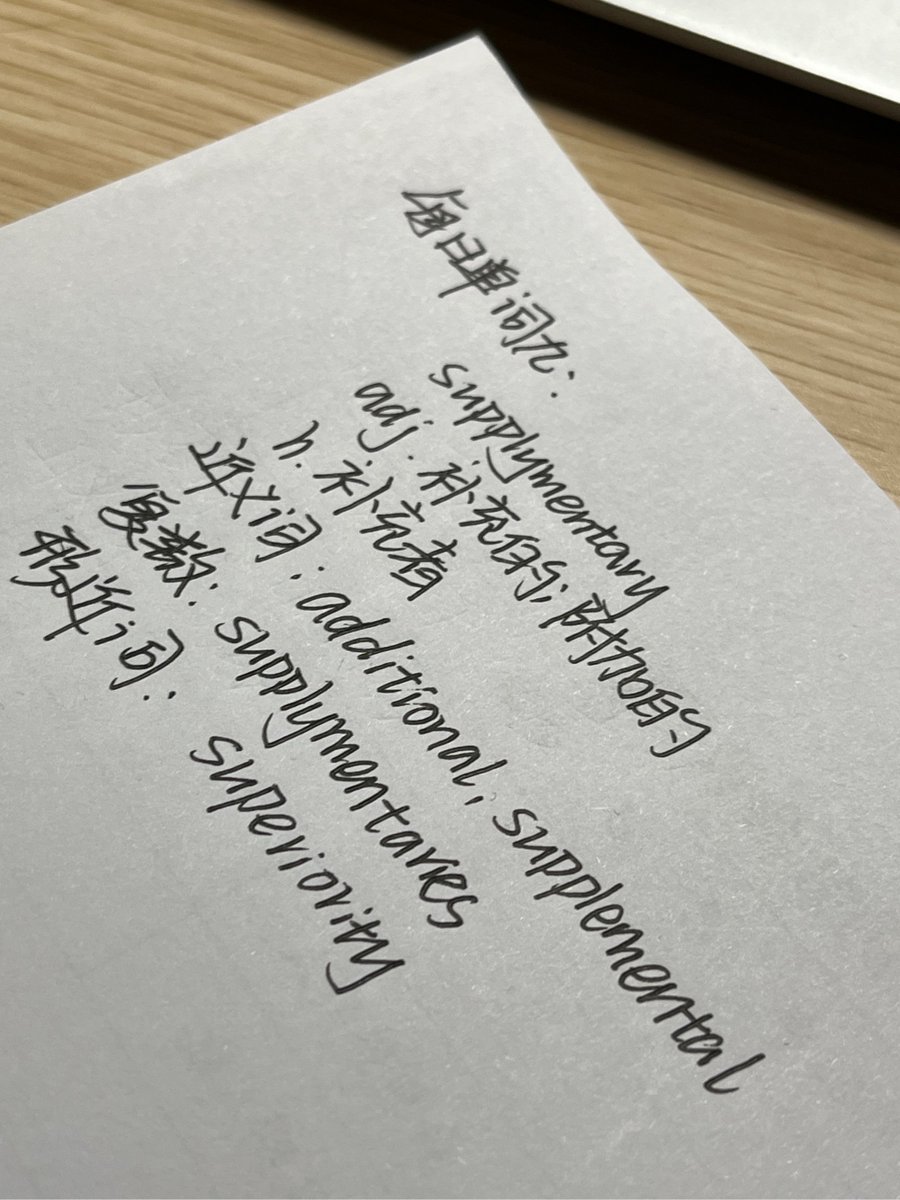 每日单词九:
supplymentary
adj. 补充的; 附加的
n. 补充者
近义词: additional, supplemental
复数: supplymentaries
形近词: superiority